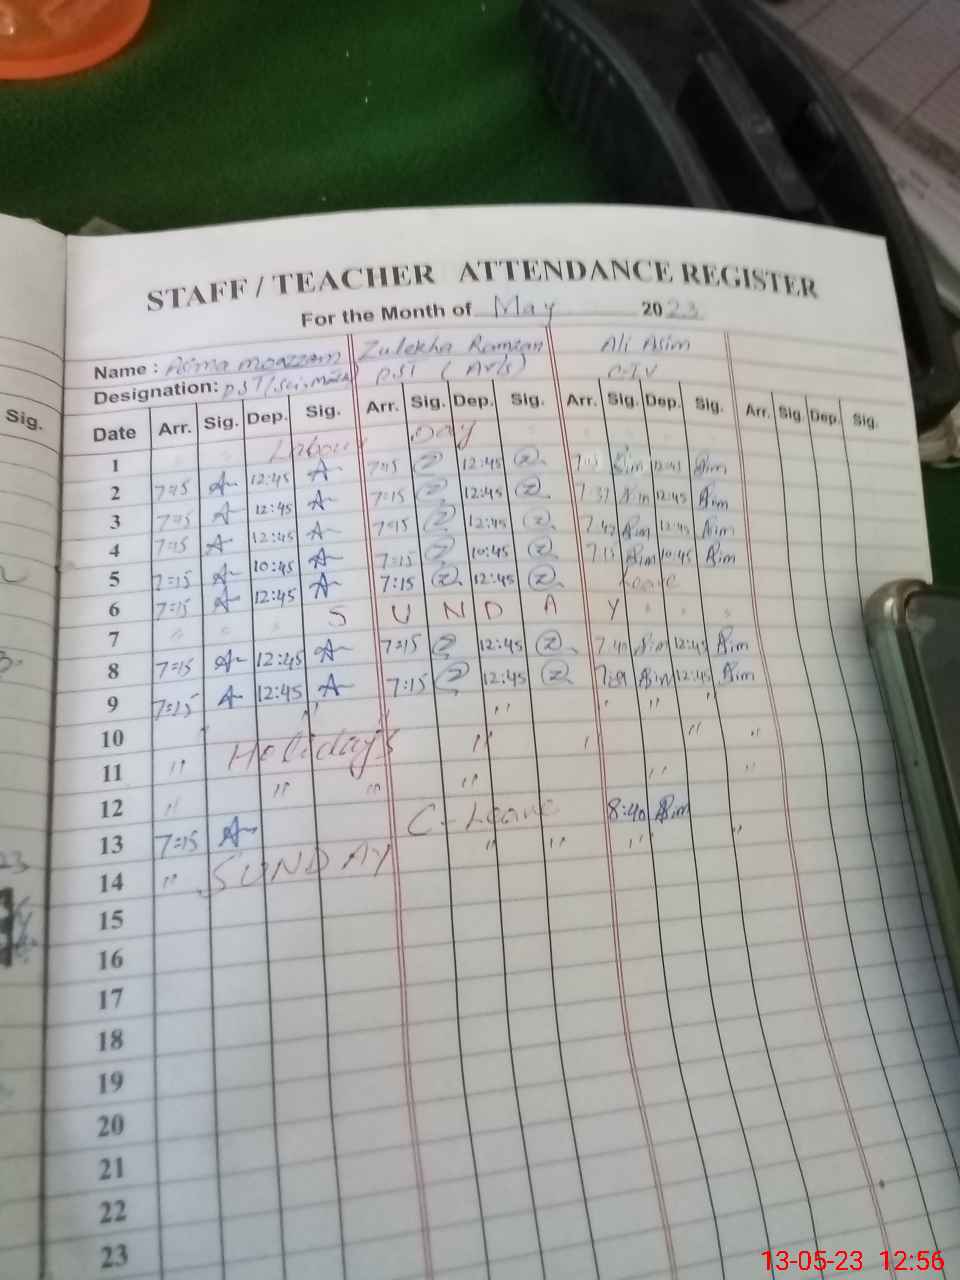 STAFF / TEACHER ATTENDANCE REGISTER
For the Month of May 2023
Name : Asma moazzam Zulekha Ramzan Ali Asim
Designation: PST P.ST (Arts)
Sig. Date Arr. Sig. Dep. Sig. Arr. Sig. Dep. Sig. Arr. Sig. Dep. Sig. Arr. Sig. Dep. Sig.
1 Labour Day
2 7:15 A 12:45 A 7:15 Z 12:45 Z 12:45 Asim
3 7:15 A 12:45 A 7:15 Z 12:45 Z 7:37 Asim 12:45 Asim
4 7:15 A 12:45 A 7:15 Z 12:45 Z 7:42 Asim 12:45 Asim
5 7:15 A 10:45 A 7:15 Z 10:45 Z 7:15 Asim 10:45 Asim
6 7:15 A 12:45 A 7:15 Z 12:45 Z Leave
7 " " " S U N D A Y " " "
8 7:15 A 12:45 A 7:15 Z 12:45 Z 7:40 Asim 12:45 Asim
9 7:15 A 12:45 A 7:15 Z 12:45 Z Asim 12:45 Asim
10 " " " " " " "
11 " Holidays " " " "
12 " " " " " "
13 7:15 A C-Leave 8:40 Asim
14 " SUNDAY " " " "
15
16
17
18
19
20
21
22
23
13-05-23 12:56